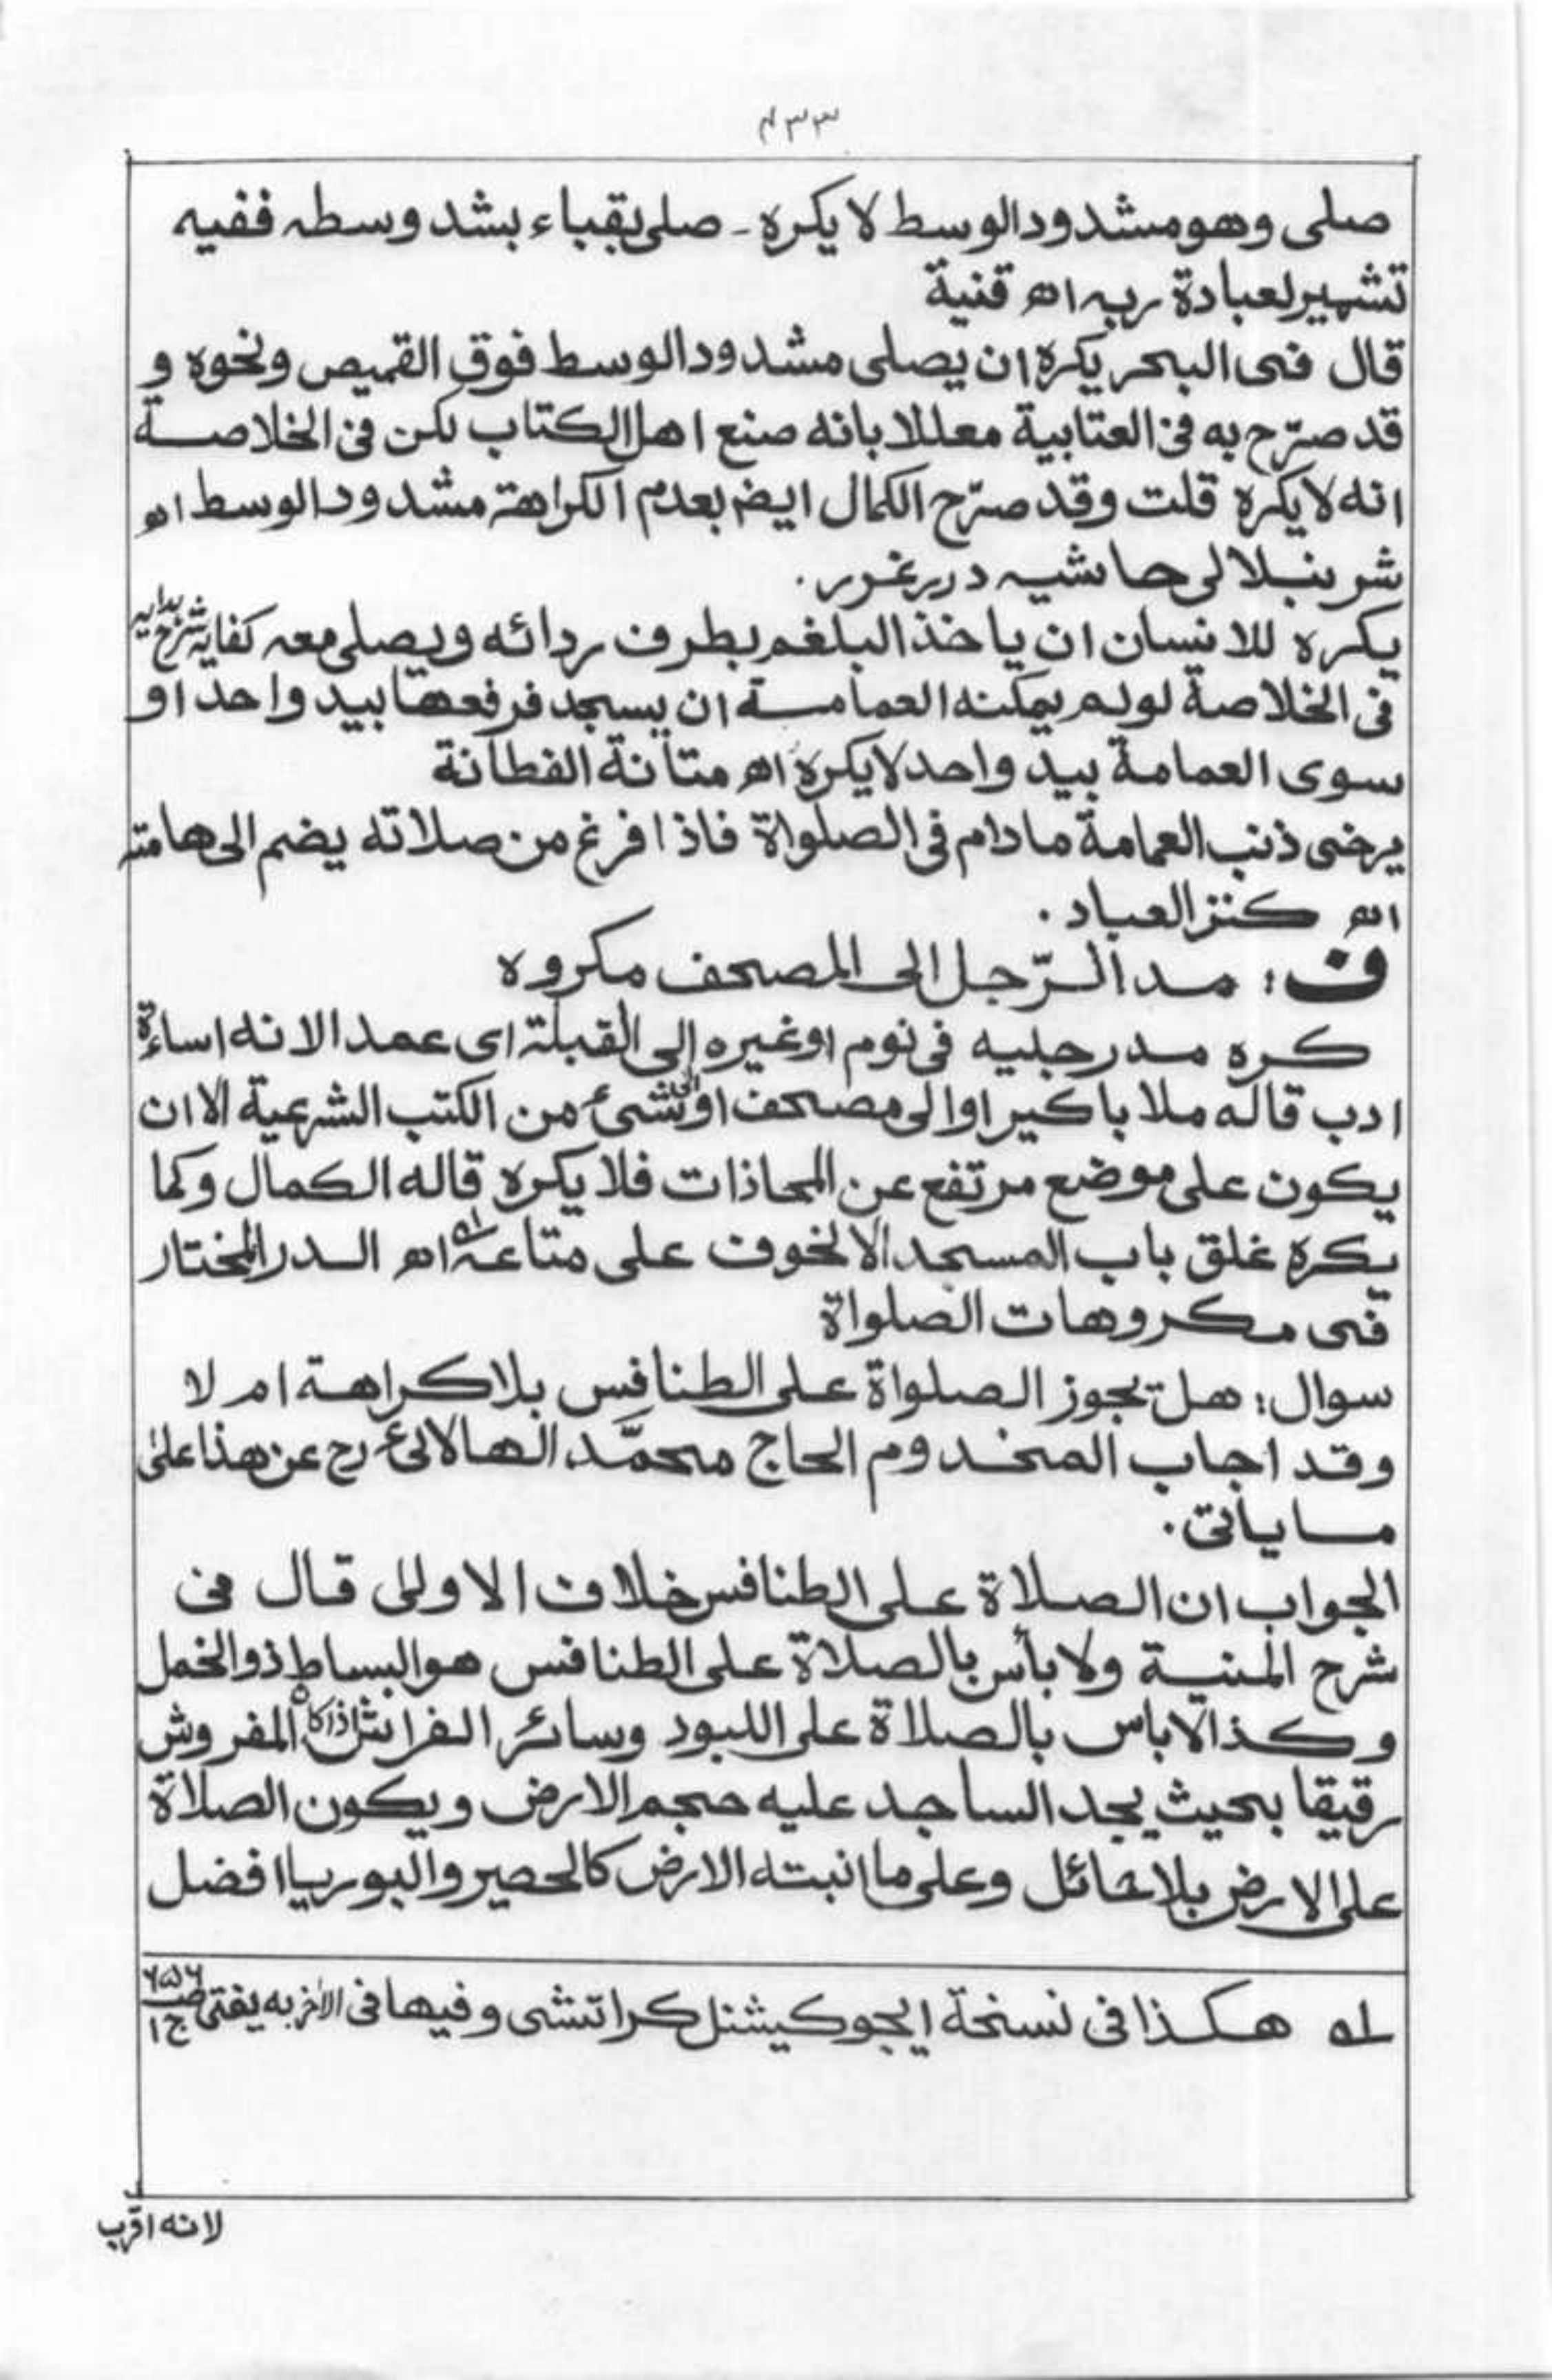 ۴۳۳
صلى وهو مشدود الوسط لا يكره ـ صلى بقباء بشد وسطہ ففيہ
تشهير لعبادة ربہ اھ قنية
قال فى البحر يكره ان يصلى مشدود الوسط فوق القميص ونحوه و
قد صرّح به فى العتابية معللا بانه صنع اهل الكتاب لكن فى الخلاصة
انه لا يكره قلت وقد صرّح الكمال ايضہ بعدم الكراهة مشدود الوسط اھ
شر بنبلا لى حاشيہ درر غرر.
يكره للانسان ان يا خذ البلغم بطرف ردائه ويصلى معہ كفايہ شرح ہدايہ
فى الخلاصة لو لم يمكنه العمامة ان يسجد فرفعها بيد واحد او
سوى العمامة بيد واحد لا يكره اھ متانة الفطانة
يرخى ذنب العمامة مادام فى الصلواة فاذا افرغ من صلاته يضم الى هامتہ
اھ كنز العباد .
ف : مد الرّجل الى المصحف مكروه
كره مد رجليه فى نوم او غيره الى القبلة اى عمد الانه اساءة
ادب قاله ملا باكير او الى مصحف او الى شئ من الكتب الشرعية الا ان
يكون على موضع مرتفع عن المحاذات فلا يكره قاله الكمال وكما
يكره غلق باب المسجد الا لخوف على متاعہ لہ اھ الدر المختار
فى مكروهات الصلواة
سوال : هل تجوز الصلواة على الطنافس بلا كراهة ام لا
وقد اجاب المخدوم الحاج محمّد الهالائى رح عن هذا على
ما ياتى.
الجواب ان الصلاة على الطنافس خلاف الاولى قال فى
شرح المنية ولا بأس بالصلاة على الطنافس هو البساط ذو الخمل
وكذا لا باس بالصلاة على اللبود وسائر الفرائش اذا كان المفروش
رقيقا بحيث يجد الساجد عليه حجم الارض ويكون الصلاة
على الارض بلا حائل وعلى ما انبته الارض كالحصير والبوريا افضل
لہ هكذا فى نسخة ايجوكيشنل كراتشى وفيها فى الأخر به يفتى صـ ۶۵۶ ج ۱
لانه اقرب